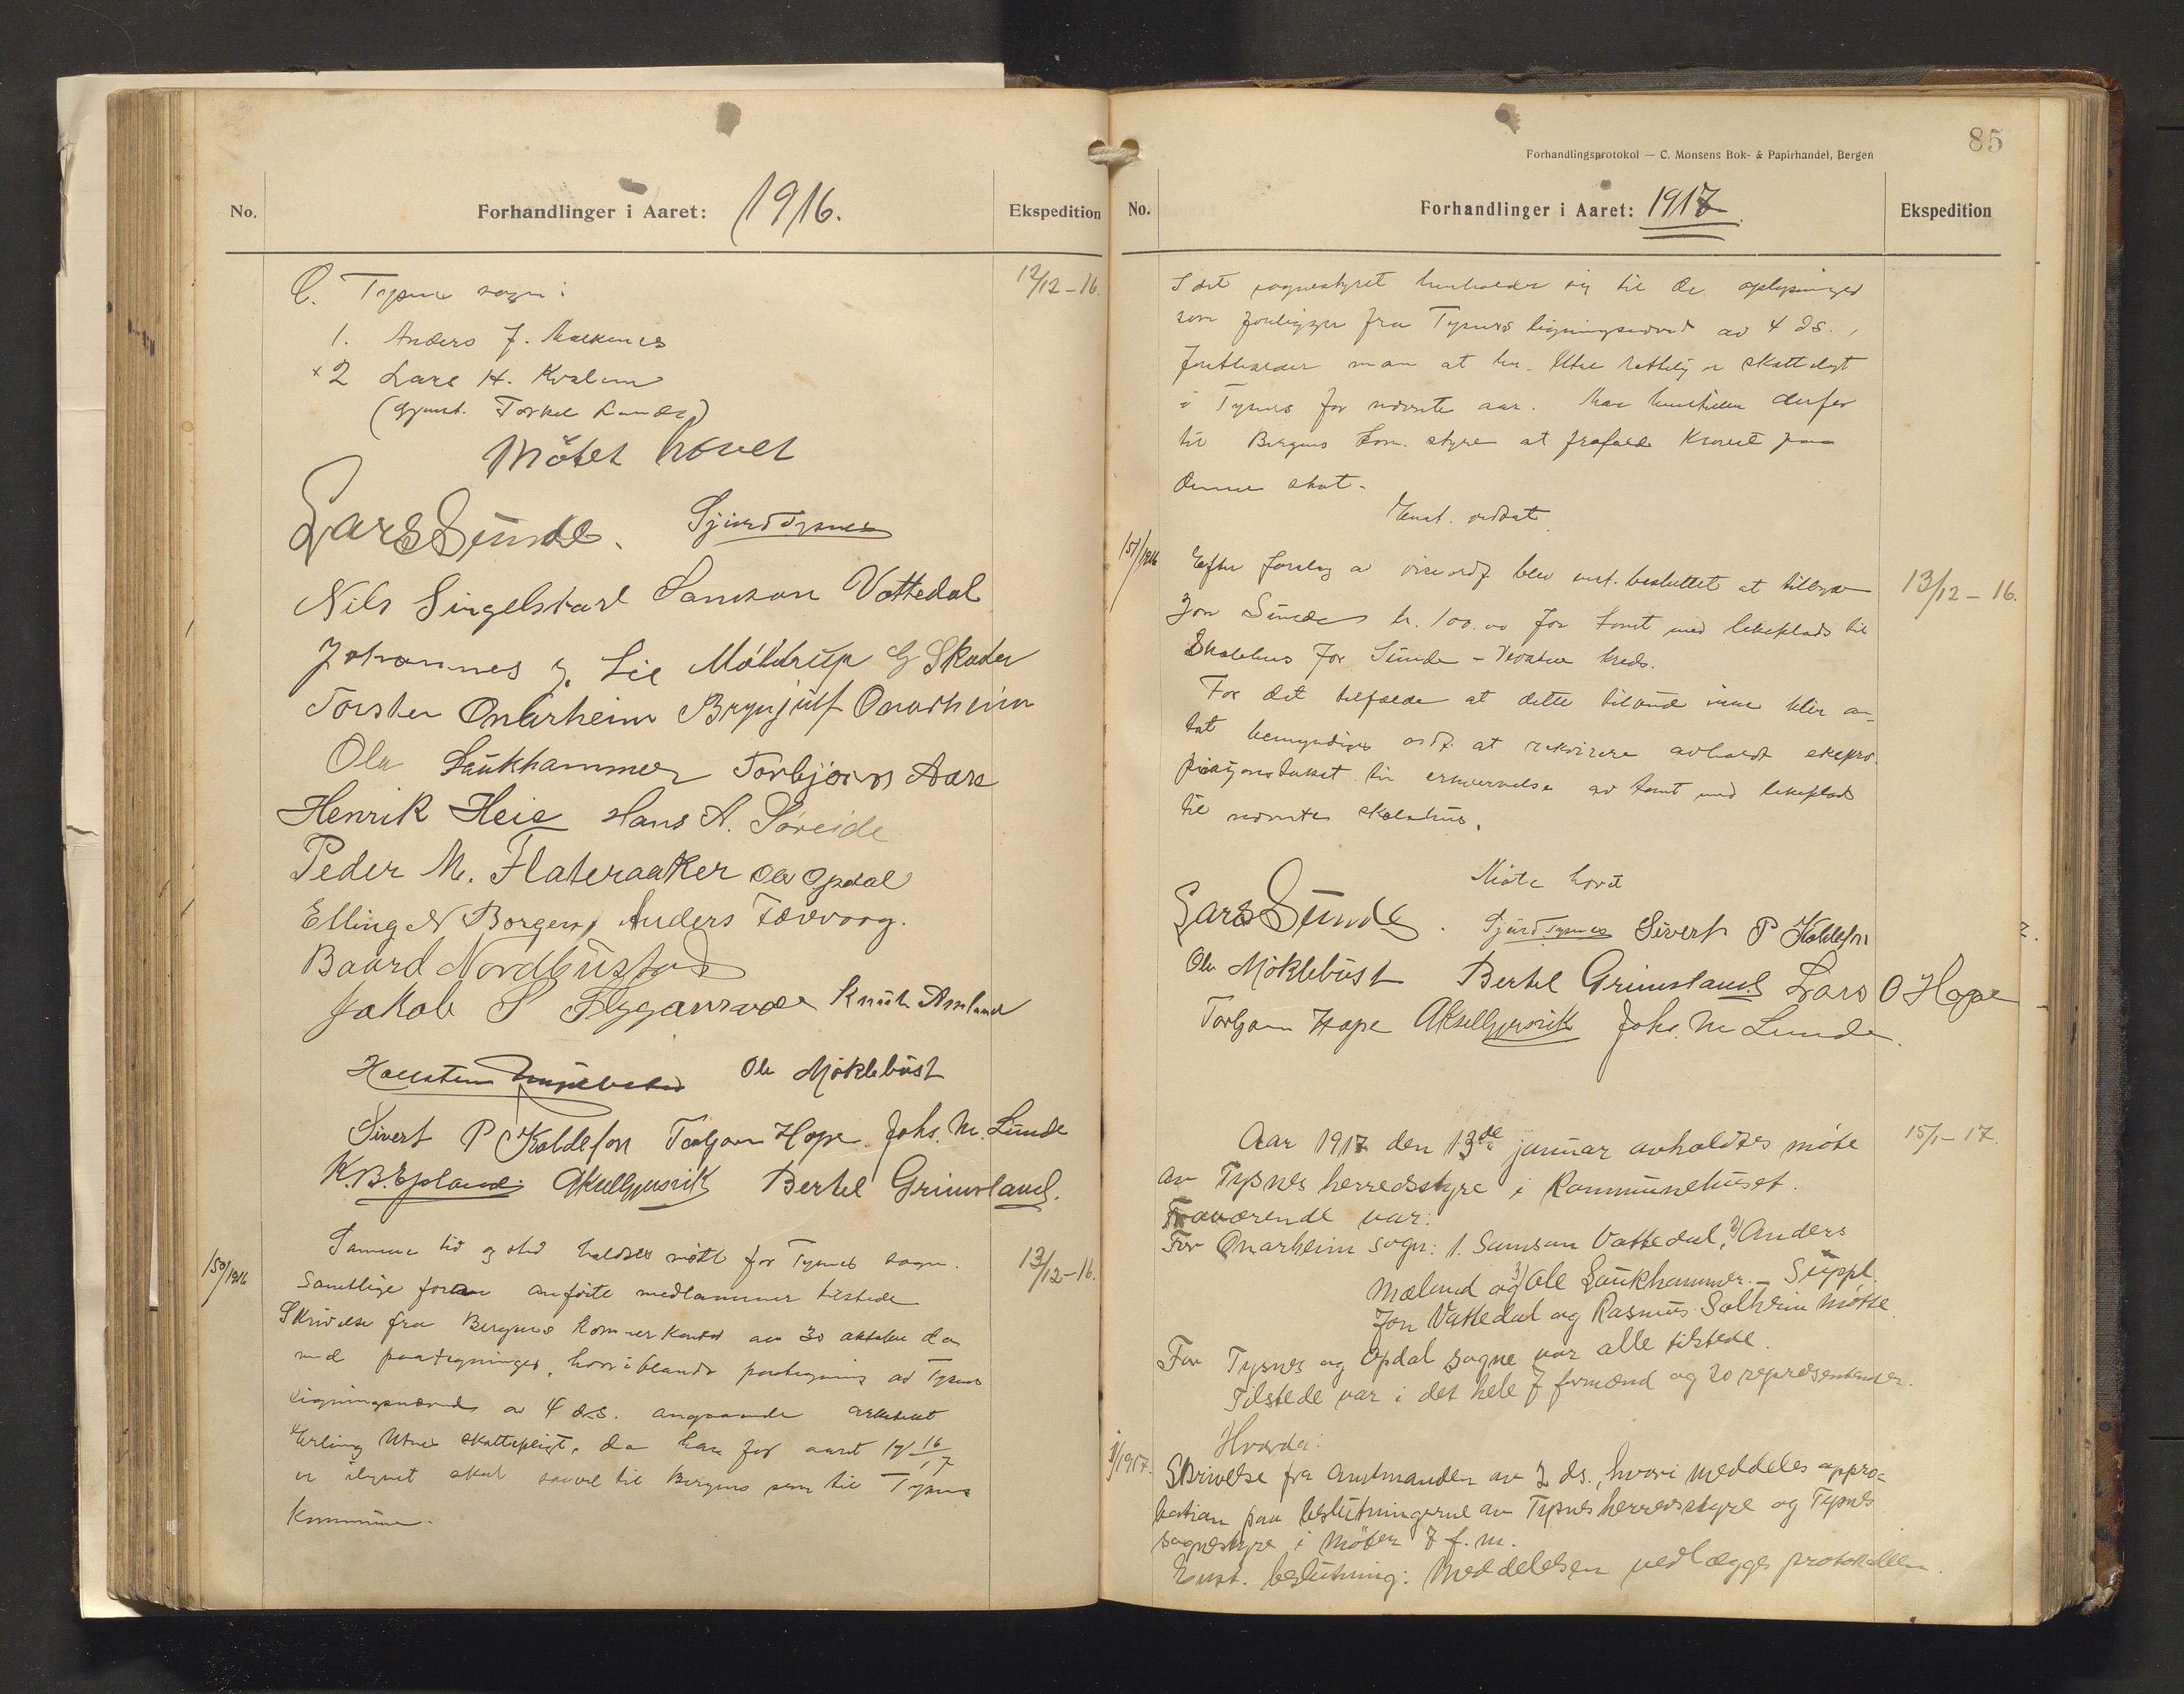 No.
Forhandlinger i Aaret: 1916.
Ekspedition
C. Tysnes sogn:
12/12-16.
1. Anders J.
x2 Lars H.
(gjenst. Torkel Lunde)
Mötet hævet
Lars Sunde. Sjurd Tysnes
Nils Singelstad Samson Vattedal
Johannes J. Lie Möldrup G Skader
Torsten Onarheim Brynjulf Onarheim
Ola Laukhammer Torbjørn Aare
Henrik Heie Hans A. Søreide
Peder M. Flateraaker Ola Opdal
Elling N Borgen, Anders Tævvaag.
Baard Nordbustad
Jakob S Flygansvær Knut Amland
Ole Möklebust
Sivert P Koldefon Torbjørn Hope Johs. M. Lunde
K.B. Epland. Aksel Gjersvik Bertel Grimsland.
150/1916
Samme tid og sted holdtes møte for Tysnes sogn.
13/12-16.
Samtlige foran anførte medlemmer tilstede
Skrivelse fra Bergens kemnerkontor av 30 oktober da
med paategninger, hvoriblandt paategning av Tysnes
ligningsnævnd av 4 ds. angaaende arkitekt
Erling skattepligt, da han for aaret 19 16/17
er ilignet skat saavel til Bergens som til Tysnes
kommune.
85
Forhandlingsprotokol — C. Monsens Bok- & Papirhandel, Bergen
No.
Forhandlinger i Aaret: 1917.
Ekspedition
Idet sognestyret henholder sig til de oplysninger
som foreligger fra Tysnes ligningsnævnd av 4 ds.,
fastholder man at hr. rettelig er skattelagt
i Tysnes for nævnte aar. Man henstiller derfor
til Bergens kom. styre at frafalde kravet paa
denne skat.
Enst. vedtat
151/1916
Efter forslag av viseordf blev enst. besluttet at tilbyde
13/12-16.
Jon Sunde kr. 100.00 for tomt med lekeplads til
Skolehus for Sunde - kreds.
For det tilfælde at dette tilbud ikke blir an-
tat bemyndiges ordf. at rekvirere avholdt ekspro-
piasjonstakst til erhvervelse av tomt med lekeplads
til nævnte skolehus.
Møte hævet
Lars Sunde. Sjurd Tysnes Sivert P Koldefon
Ole Möklebust Bertel Grimsland Lars O Hope
Torbjørn Hope Aksel Gjersvik Johs. M Lunde.
Aar 1917 den 13de januar avholdtes möte
15/1-17.
av Tysnes herredsstyre i Kommunehuset.
Fraværende var:
For Onarheim sogn: 1. Samson Vattedal, 2) Anders
Mæland og 3) Ole Laukhammer. - Suppl.
Jon Vattedal og Rasmus Solheim mötte
For Tysnes og Opdal sogne var alle tilstede.
Tilstede var i det hele 7 formænd og 20 repræsentanter.
Hvorda:
1/1917.
Skrivelse fra Amtmanden av 2 ds., hvori meddeles appro-
bation paa beslutningerne av Tysnes herredsstyre og Tysnes
sognestyre i møter 7 f. m.
Enst. beslutning: Meddelelsen vedlægges protokollen.